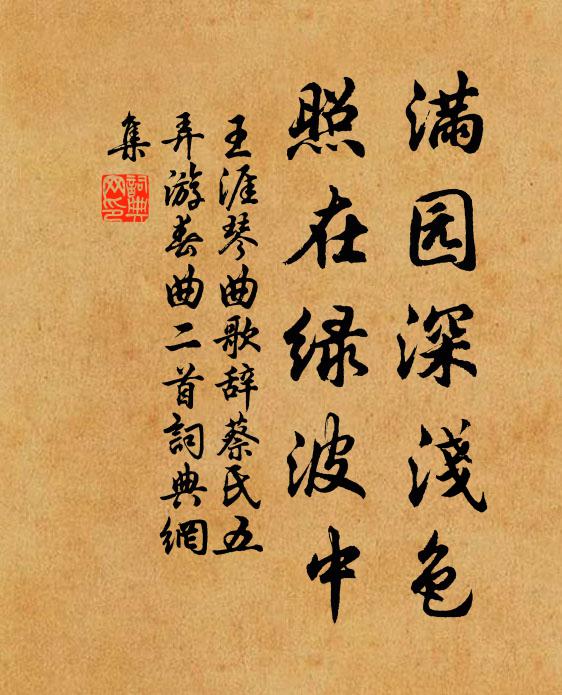 满园深浅色
照在绿波中
王涯琴曲歌辞蔡氏五
弄游春曲二首詞典網
集
詞典
网印